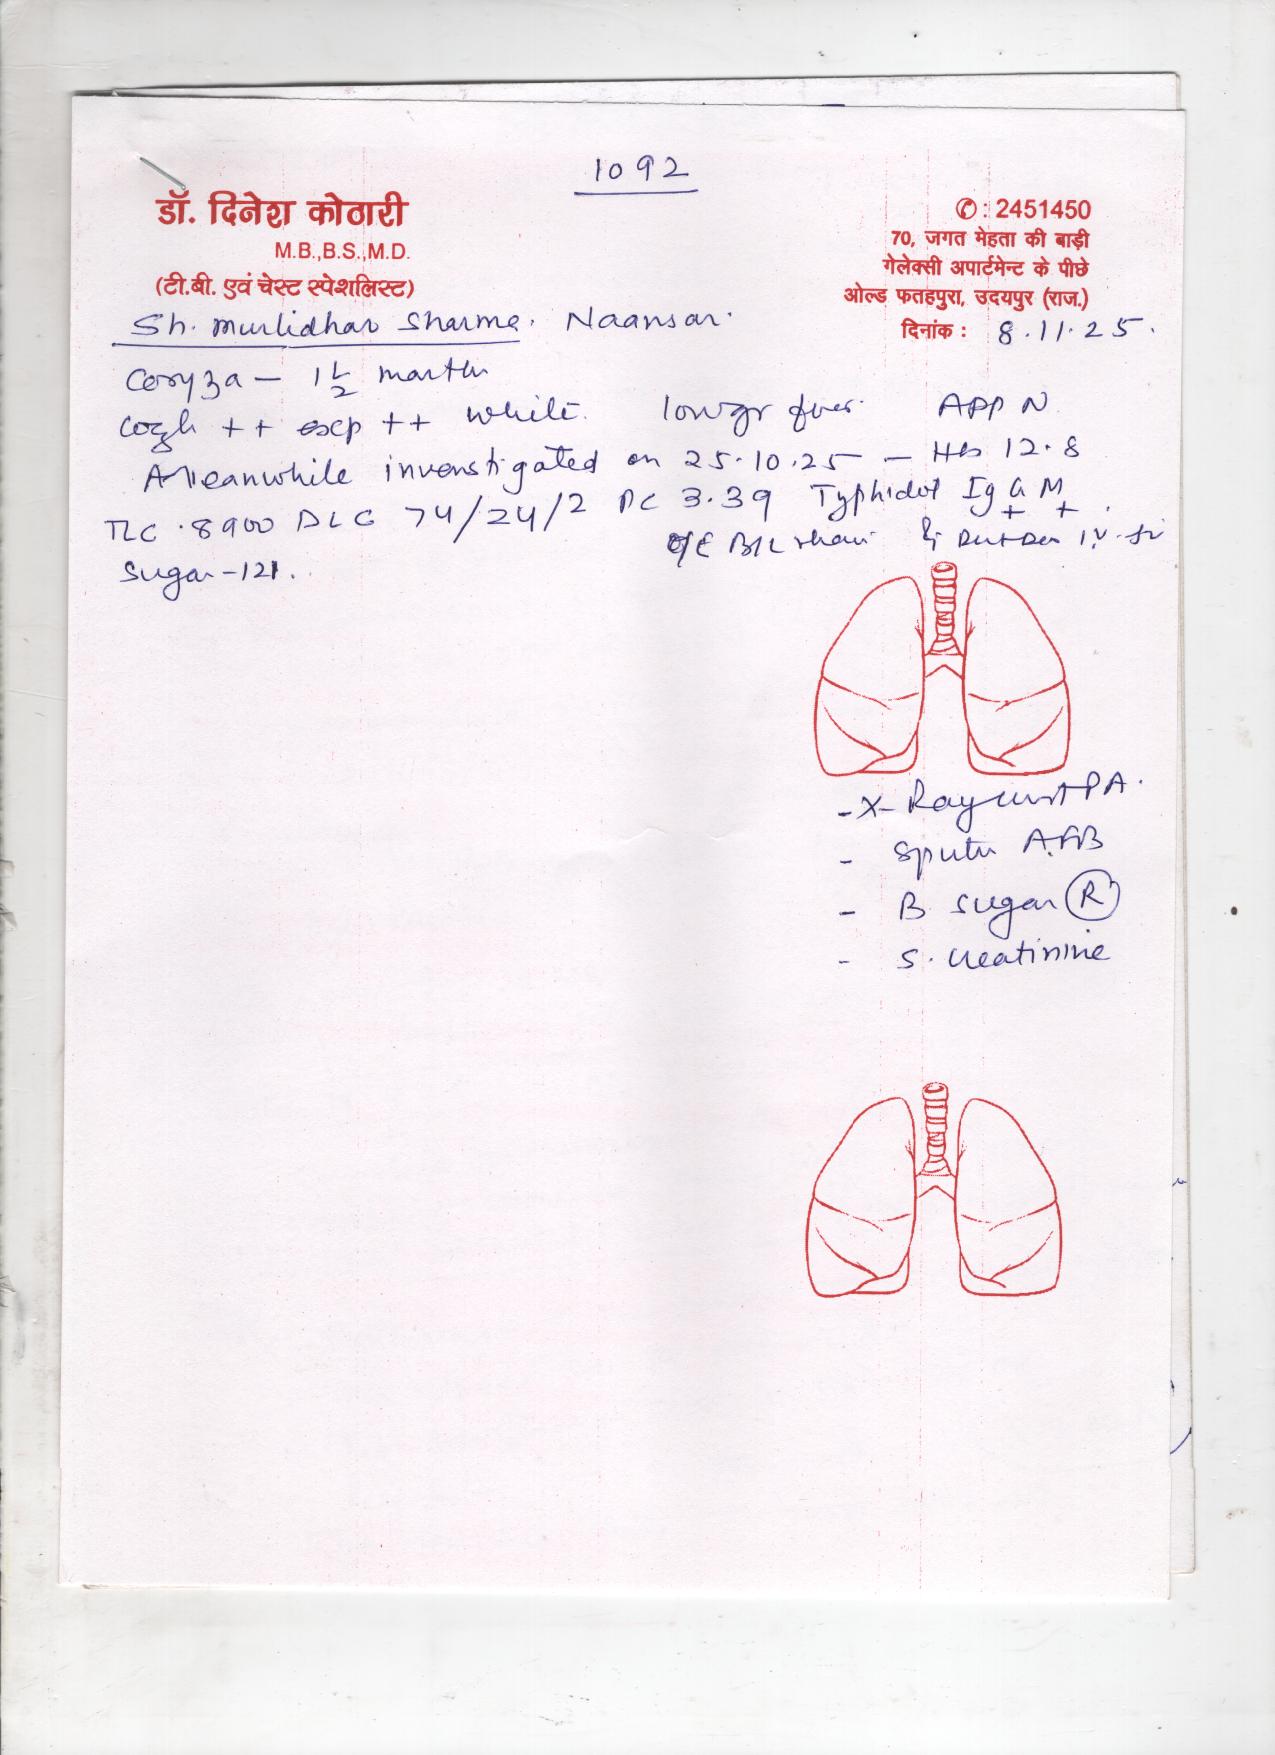 1092
डॉ. दिनेश कोठारी
M.B.,B.S.,M.D.
(टी.बी. एवं चेस्ट स्पेशलिस्ट)
✆ : 2451450
70, जगत मेहता की बाड़ी
गेलेक्सी अपार्टमेन्ट के पीछे
ओल्ड फतहपुरा, उदयपुर (राज.)
दिनांक : 8.11.25.
Sh. Murlidhar Sharma. Naansar.
Coryza - 1 1/2 month
Cough ++ exp ++ white. lowgr fever. APP N
Meanwhile invenstigated on 25.10.25 - Hb 12.8
TLC . 8900 DLC 74/24/2 PC 3.39 Typhidot Ig G M
+ +
Sugar - 121.
O/E B/L
- X-Ray chest PA.
- Sputu AFB
- B sugar (R)
- S. creatinine